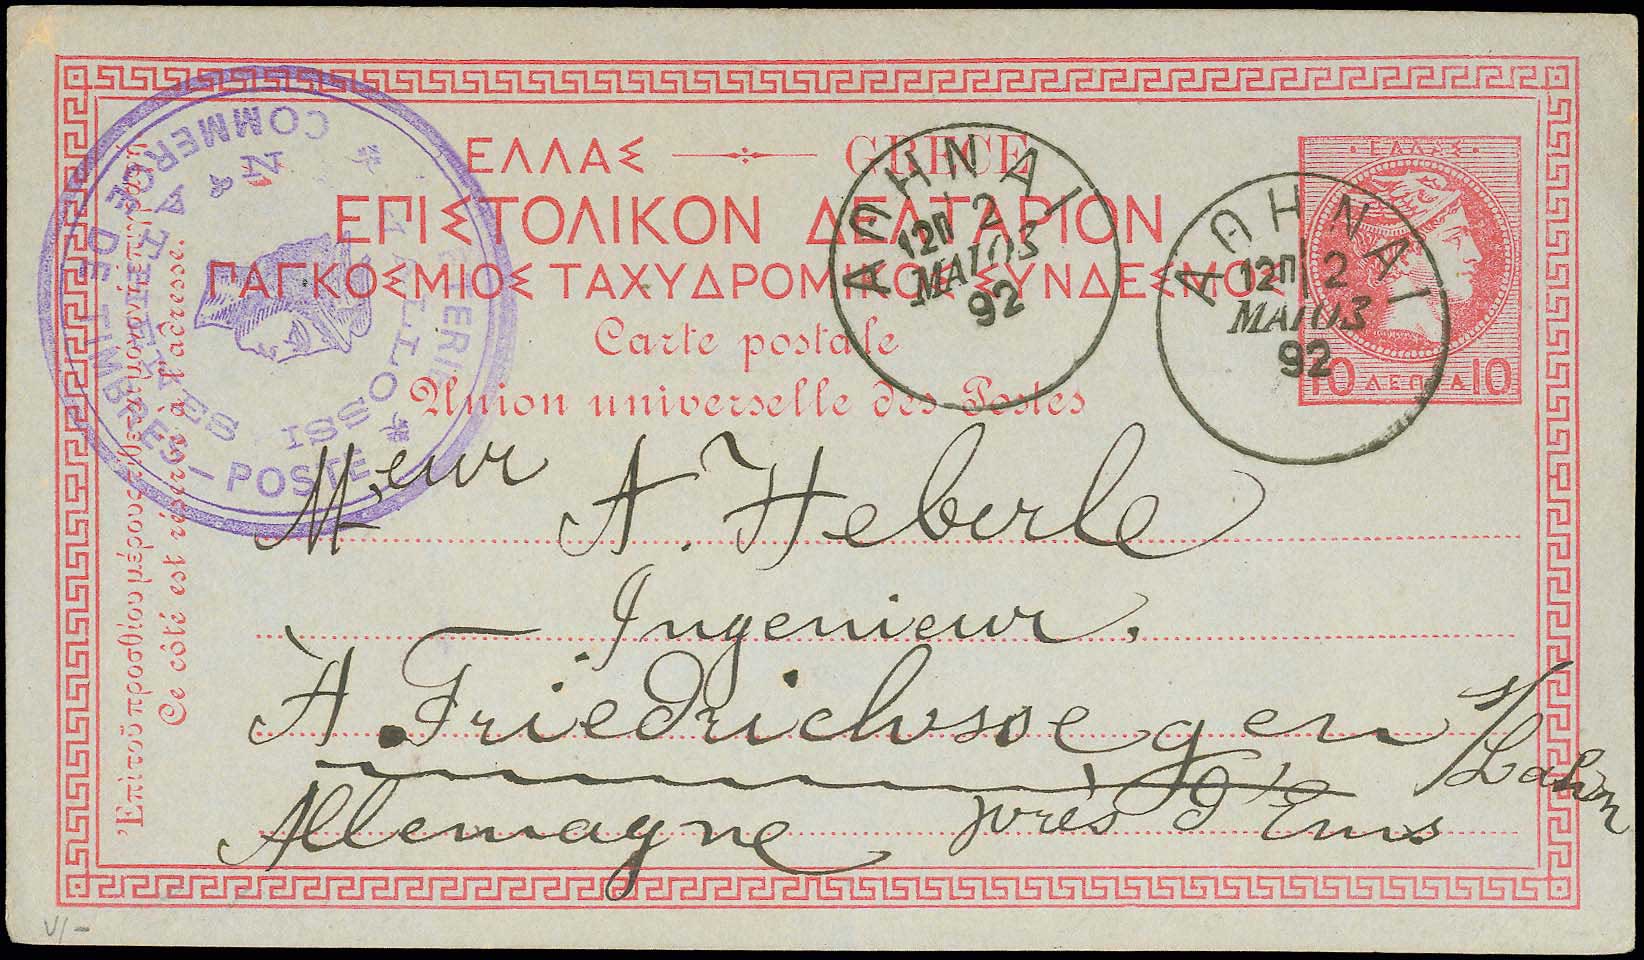 ΕΛΛΑΣ — GRECE
ΕΠΙΣΤΟΛΙΚΟΝ ΔΕΛΤΑΡΙΟΝ
ΠΑΓΚΟΣΜΙΟΣ ΤΑΧΥΔΡΟΜΙΚΟΣ ΣΥΝΔΕΣΜΟΣ
Carte postale
Union universelle des Postes
·ΕΛΛΑΣ·
10 ΛΕΠΤΑ 10
ΑΘΗΝΑΙ
12Π 2
ΜΑΙΟΣ
92
ΑΘΗΝΑΙ
12Π 2
ΜΑΙΟΣ
92
COMMERCE DE TIMBRES-POSTE
ATHÈNES
Ἐπὶ τοῦ προσθίου μέρους
Ce côté est réservé à l'adresse.
Mieur A. Heberle
Ingenieur.
À. Friedrichssegen /Lahn
près d'Ems
Allemagne